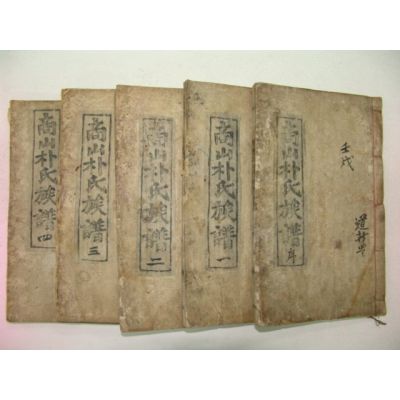 壬戌
商山朴氏族譜
商山朴氏族譜 一
商山朴氏族譜 二
商山朴氏族譜 三
商山朴氏族譜 四